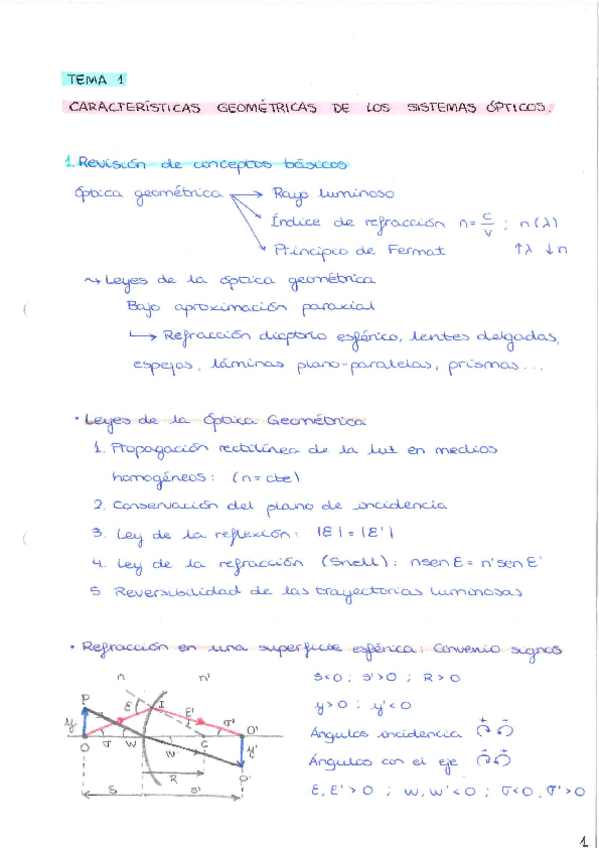 TEMA 1
CARACTERÍSTICAS GEOMÉTRICAS DE LOS SISTEMAS ÓPTICOS.
1. Revisión de conceptos básicos
Óptica geométrica → Rayo luminoso
Índice de refracción n = c/v ; n(λ)
Principio de Fermat ↑λ ↓n
↝ Leyes de la óptica geométrica
Bajo aproximación paraxial
↳ Refracción dioptrio esférico, lentes delgadas,
espejos, láminas plano-paralelas, prismas...
• Leyes de la Óptica Geométrica
1. Propagación rectilínea de la luz en medios
homogéneos: (n = cte)
2. Conservación del plano de incidencia
3. Ley de la reflexión: |ε| = |ε'|
4. Ley de la refracción (Snell): n sen ε = n' sen ε'
5. Reversibilidad de las trayectorias luminosas
• Refracción en una superficie esférica: Convenio signos
n n'
P ε I ε' σ'
y O σ w w' C O' y'
R P'
s s'
s<0 ; s'>0 ; R>0
y>0 ; y'<0
Ángulos incidencia + -
Ángulos con el eje - +
ε, ε'>0 ; w, w'<0 ; σ<0, σ'>0
1